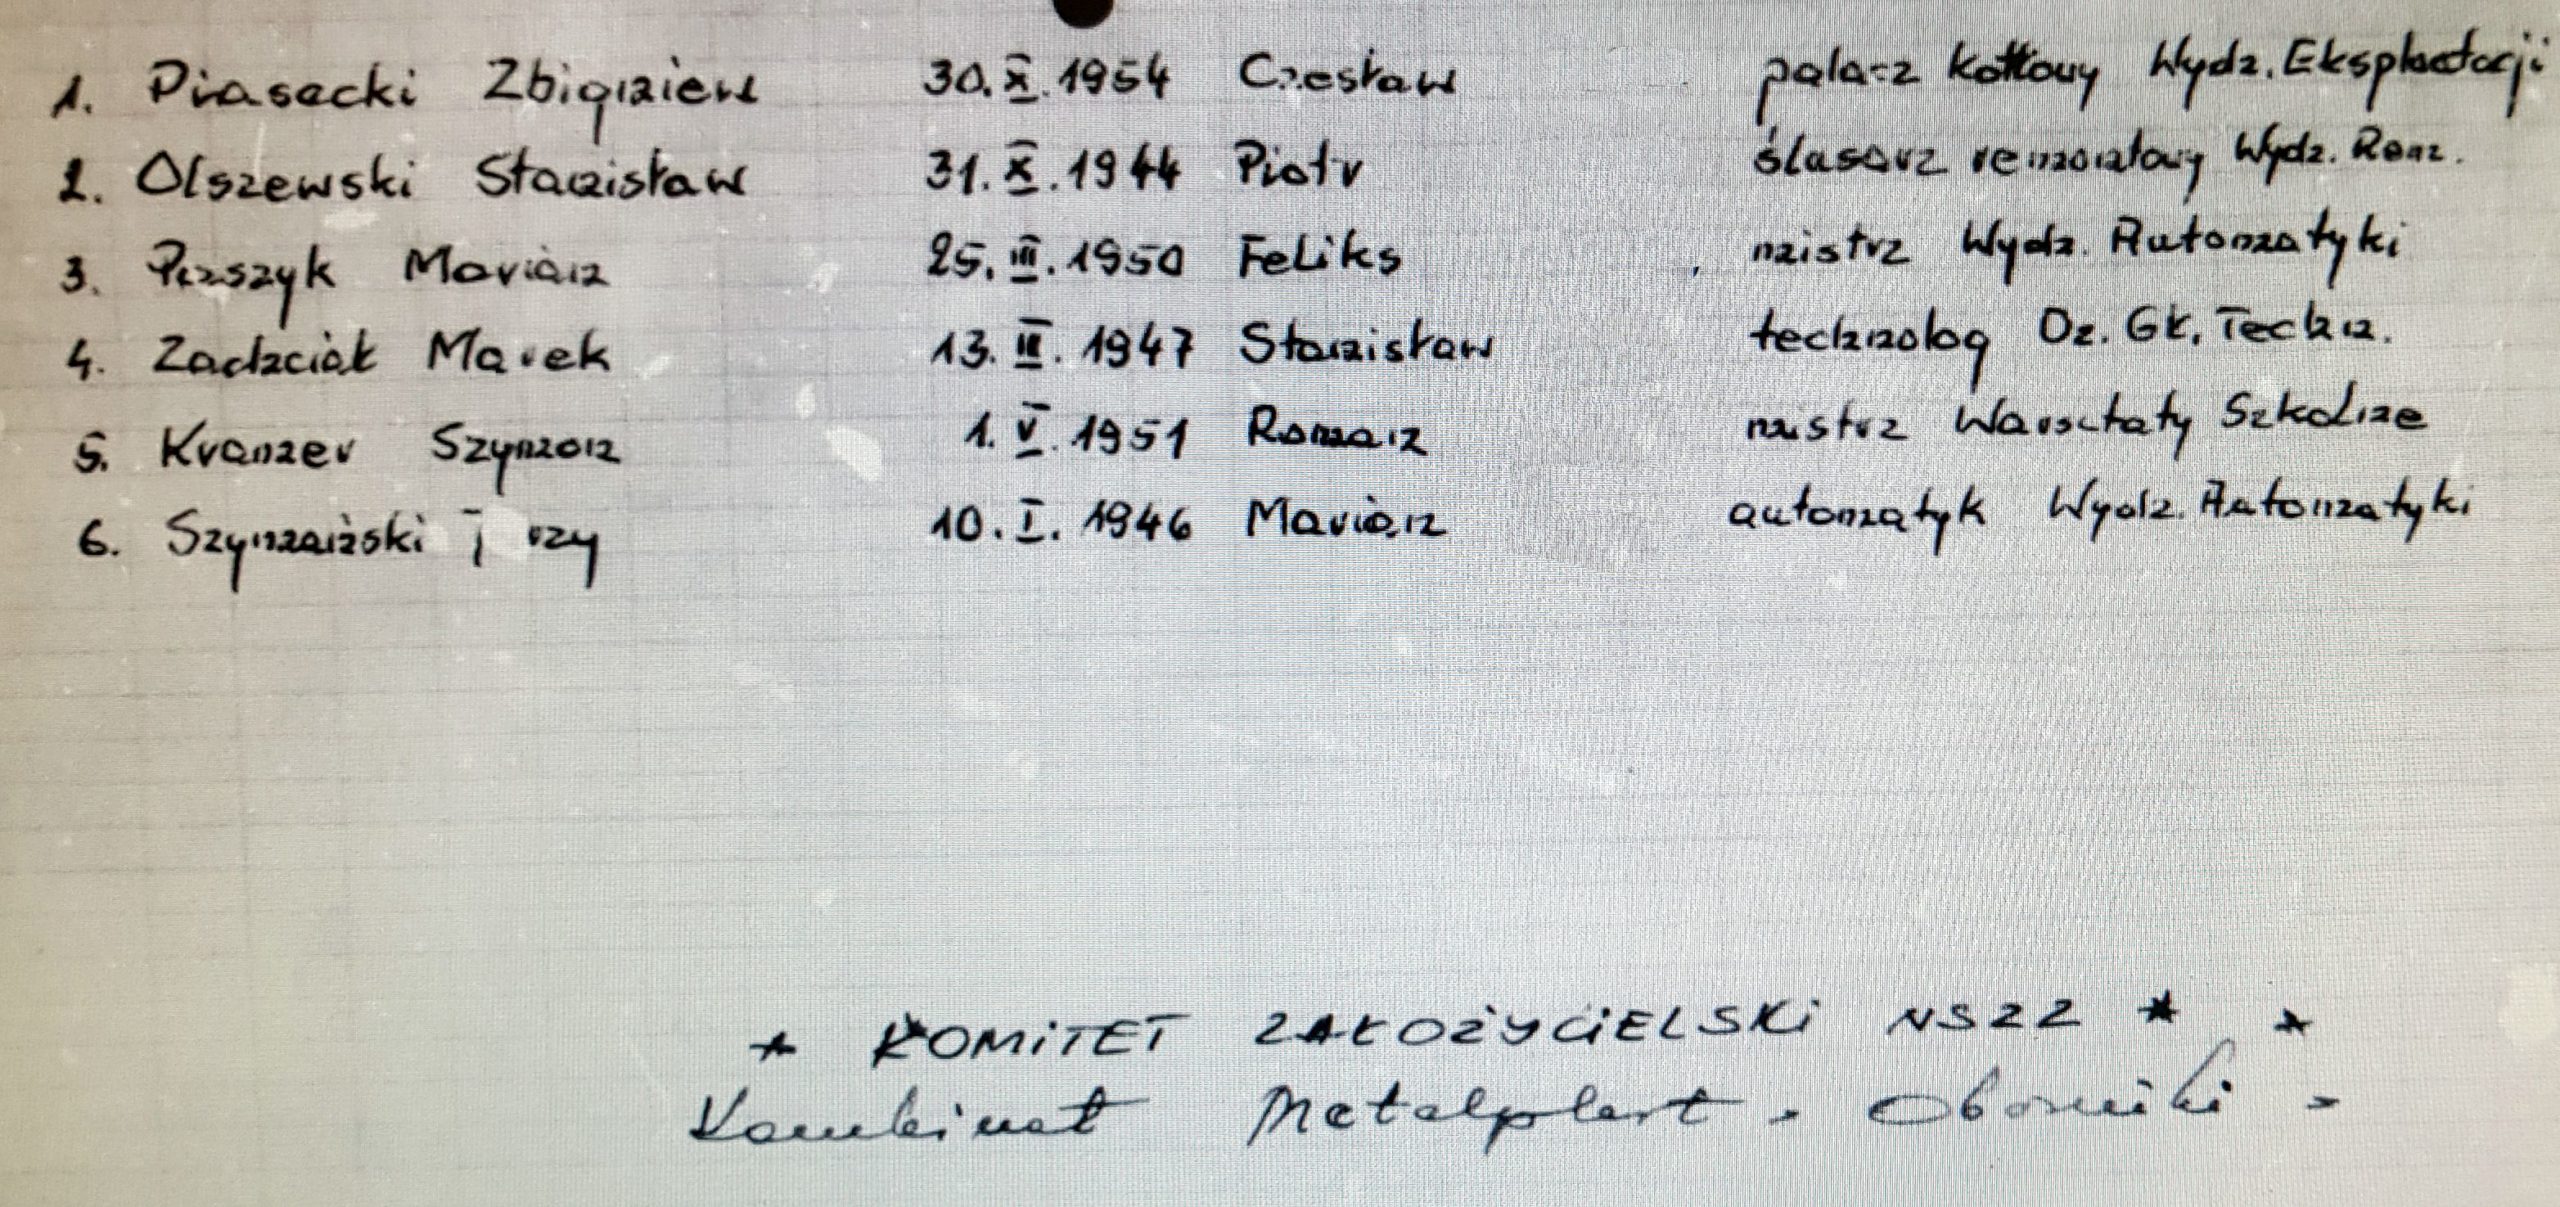 1. Piasecki Zbigniew 30. X. 1954 Czesław palacz kotłowy Wydz. Eksploatacji
2. Olszewski Stanisław 31. X. 1944 Piotr ślusarz remontowy Wydz. Rem.
3. Marian 25. III. 1950 Feliks mistrz Wydz. Automatyki
4. Marek 13. II. 1947 Stanisław technolog Dz. Gł. Techn.
5. Kramer Szymon 1. V. 1951 Roman mistrz Warsztaty Szkolne
6. Szymański Jerzy 10. I. 1946 Marian automatyk Wydz. Automatyki
* KOMITET ZAŁOŻYCIELSKI NSZZ * *
Kombinat Metalplast - Oborniki -